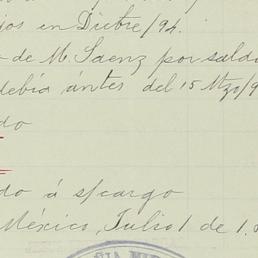 jos en Dicbre/94.
de M. Saenz por saldo
debía ántes del 15 Mzo/9
do
do á s/cargo
México, Julio 1 de 1.